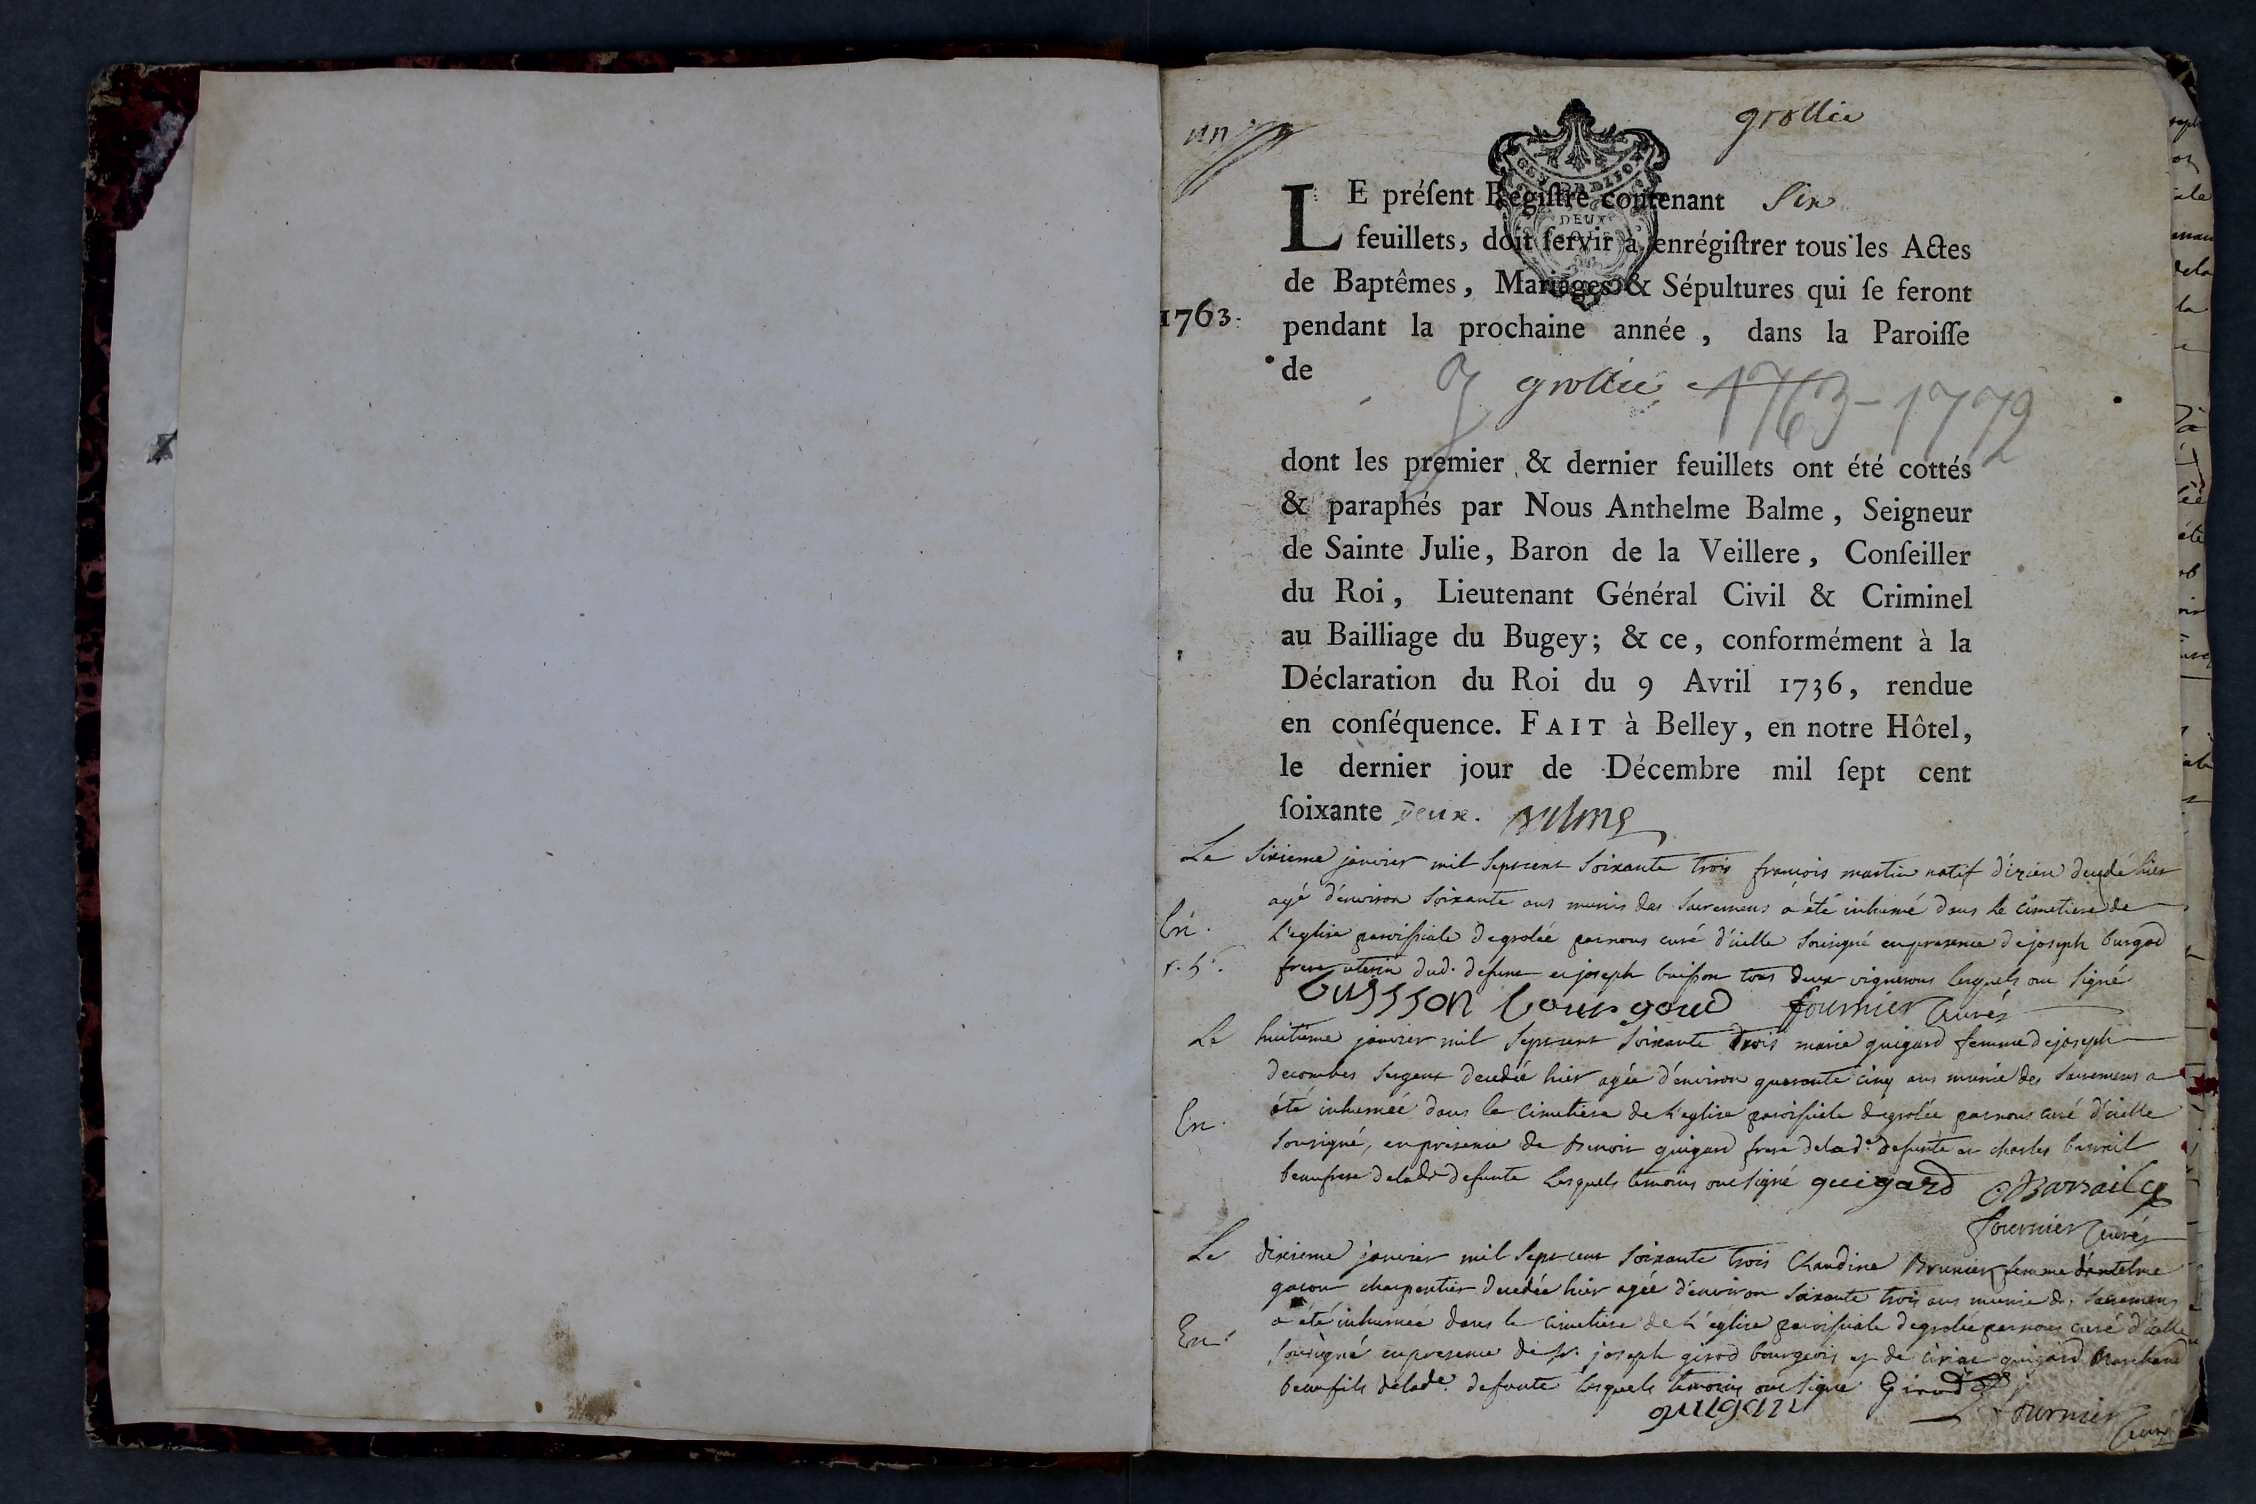 un
grollée
LE préſent Regiſtre contenant Six
feuillets, doit ſervir à enrégiſtrer tous les Actes
de Baptêmes, Mariages & Sépultures qui ſe feront
1763.
pendant la prochaine année, dans la Paroiſſe
de grollée 1763-1772
dont les premier & dernier feuillets ont été cottés
& paraphés par Nous Anthelme Balme, Seigneur
de Sainte Julie, Baron de la Veillere, Conſeiller
du Roi, Lieutenant Général Civil & Criminel
au Bailliage du Bugey; & ce, conformément à la
Déclaration du Roi du 9 Avril 1736, rendue
en conſéquence. FAIT à Belley, en notre Hôtel,
le dernier jour de Décembre mil ſept cent
ſoixante deux. Balme
Le Sixieme janvier mil Sept cent Soixante trois françois martin natif d'izieu decedé hier
agé d'environ Soixante ans munis des Sacremens a été inhumé dans le cimetiere de
L'eglise paroissiale de grolée par nous curé d'icelle Sousigné en presence de joseph burgod
frere uterin dud. defunt et joseph buisson tous deux vignerons lesquels ont Signé
buisson bourgoud fournier Curé
Le huitieme janvier mil Sept cent Soixante trois marie guigard femme de joseph
decombes Sergent decedée hier agée d'environ quarante cinq ans munie des Sacremens a
En.
été inhumée dans le cimetiere de L'eglise paroissiale de grolée par nous curé d'icelle
Sousigné, en presence de Benoit guigard frere de lad.e defunte et charles barrail
beaufrere de lad.e defunte Lesquels temoins ont signé guigard C Barrail
fournier Curé
Le dixieme janvier mil Sept cent Soixante trois Claudine Brunier femme d'antelme
gacon charpentier decedée hier agée d'environ Soixante trois ans munie des Sacremens
a été inhumée dans le cimetiere de L'église paroissiale de grolée par nous curé d'icelle
En.
Sousigné en presence de Sr. joseph girod bourgeois et de guigard Marchand
beaufils de lad.e defunte lesquels temoins ont signe Girod
guigard fournier Curé